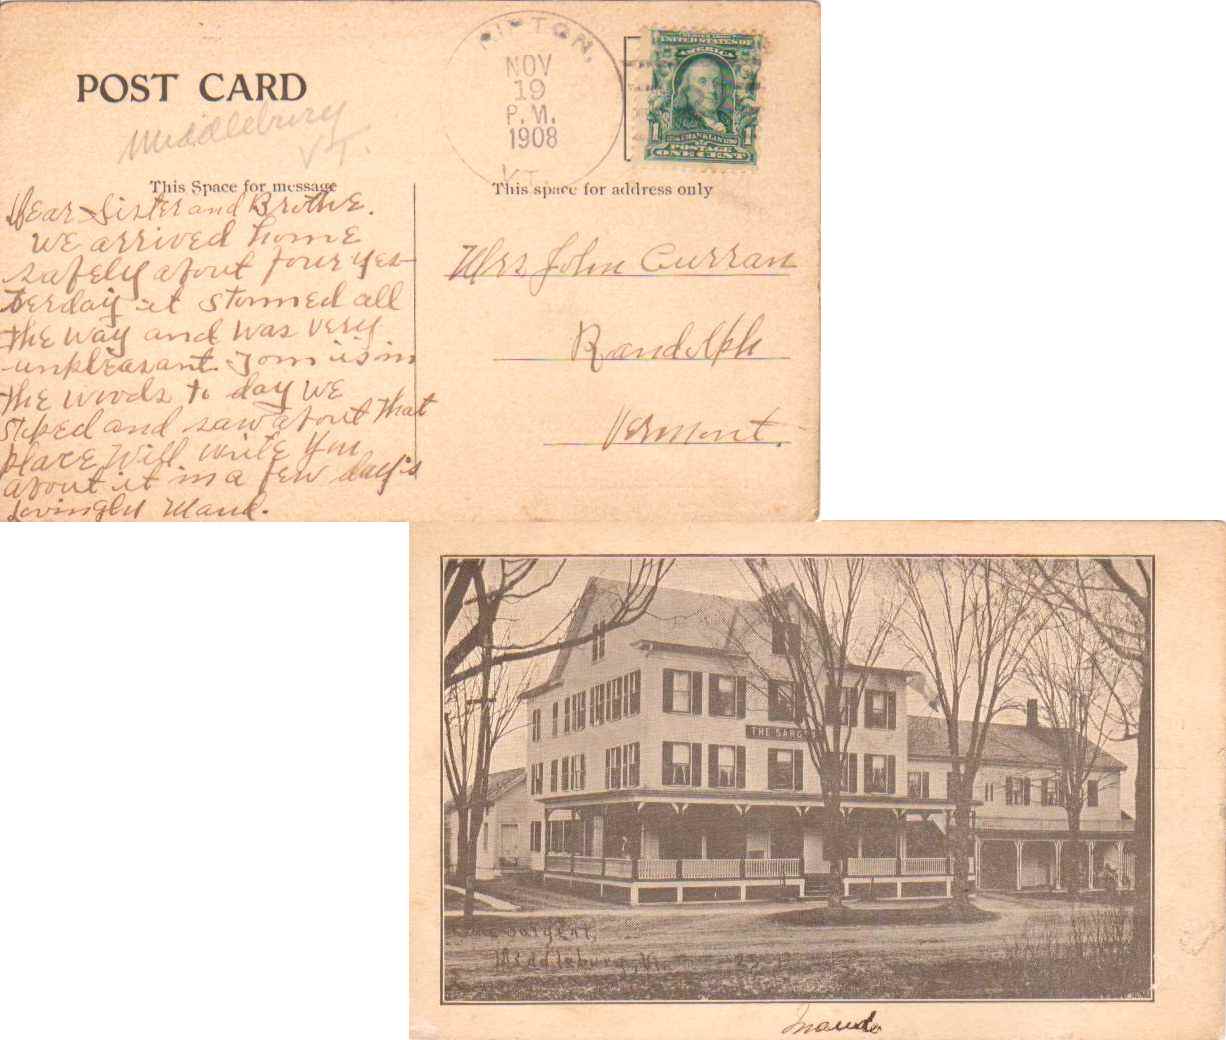 POST CARD
Middlebury
VT.
RIPTON,
NOV
19
P.M.
1908
VT.
UNITED STATES OF
AMERICA
1 FRANKLIN 1
POSTAGE
ONE CENT
This Space for message
This space for address only
Dear Sister and Brothe.
We arrived home
safely about four yes-
terday it stormed all
the way and was very
unpleasant. Tom is in
the woods to day we
stoped and saw about that
place Will write you
about it in a few day's
Lovingly Maud.
Mrs John Curran
Randolph
Vermont.
THE SARG
The Sargent,
Middlebury, Vt.
Maude